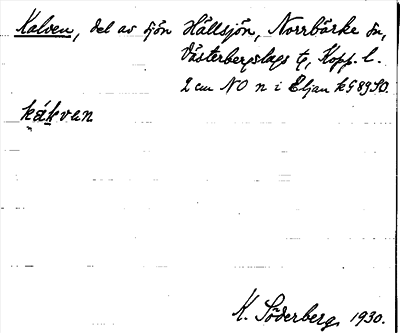 Kalven, del av sjön Hällsjön, Norrbärke sn,
Västerbergslags tg, Kopp. l.
2 cm NO n i Eljan kG 89 SO.
kákvan
K. Söderberg 1930.